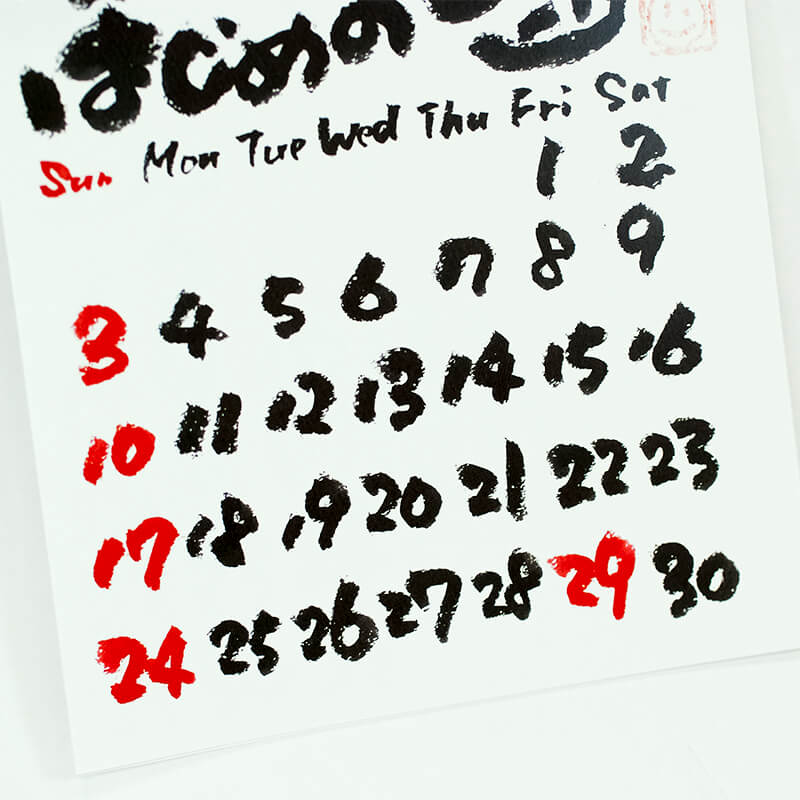 はじめの
Sun Mon Tue Wed Thu Fri Sat
1 2
3 4 5 6 7 8 9
10 11 12 13 14 15 16
17 18 19 20 21 22 23
24 25 26 27 28 29 30